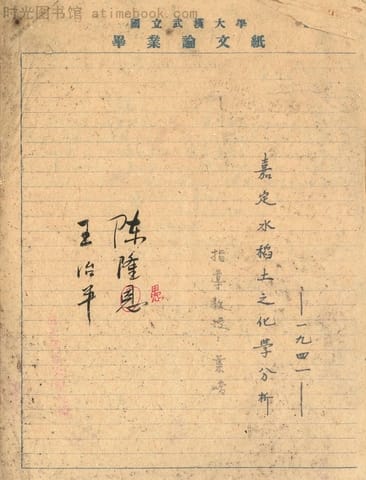 时光图书馆 atimebook.com
國立武漢大學
畢業論文紙
—一九四一—
嘉定水稻土之化學分析
指導教授 葉嶠
陈隆恩
王治平